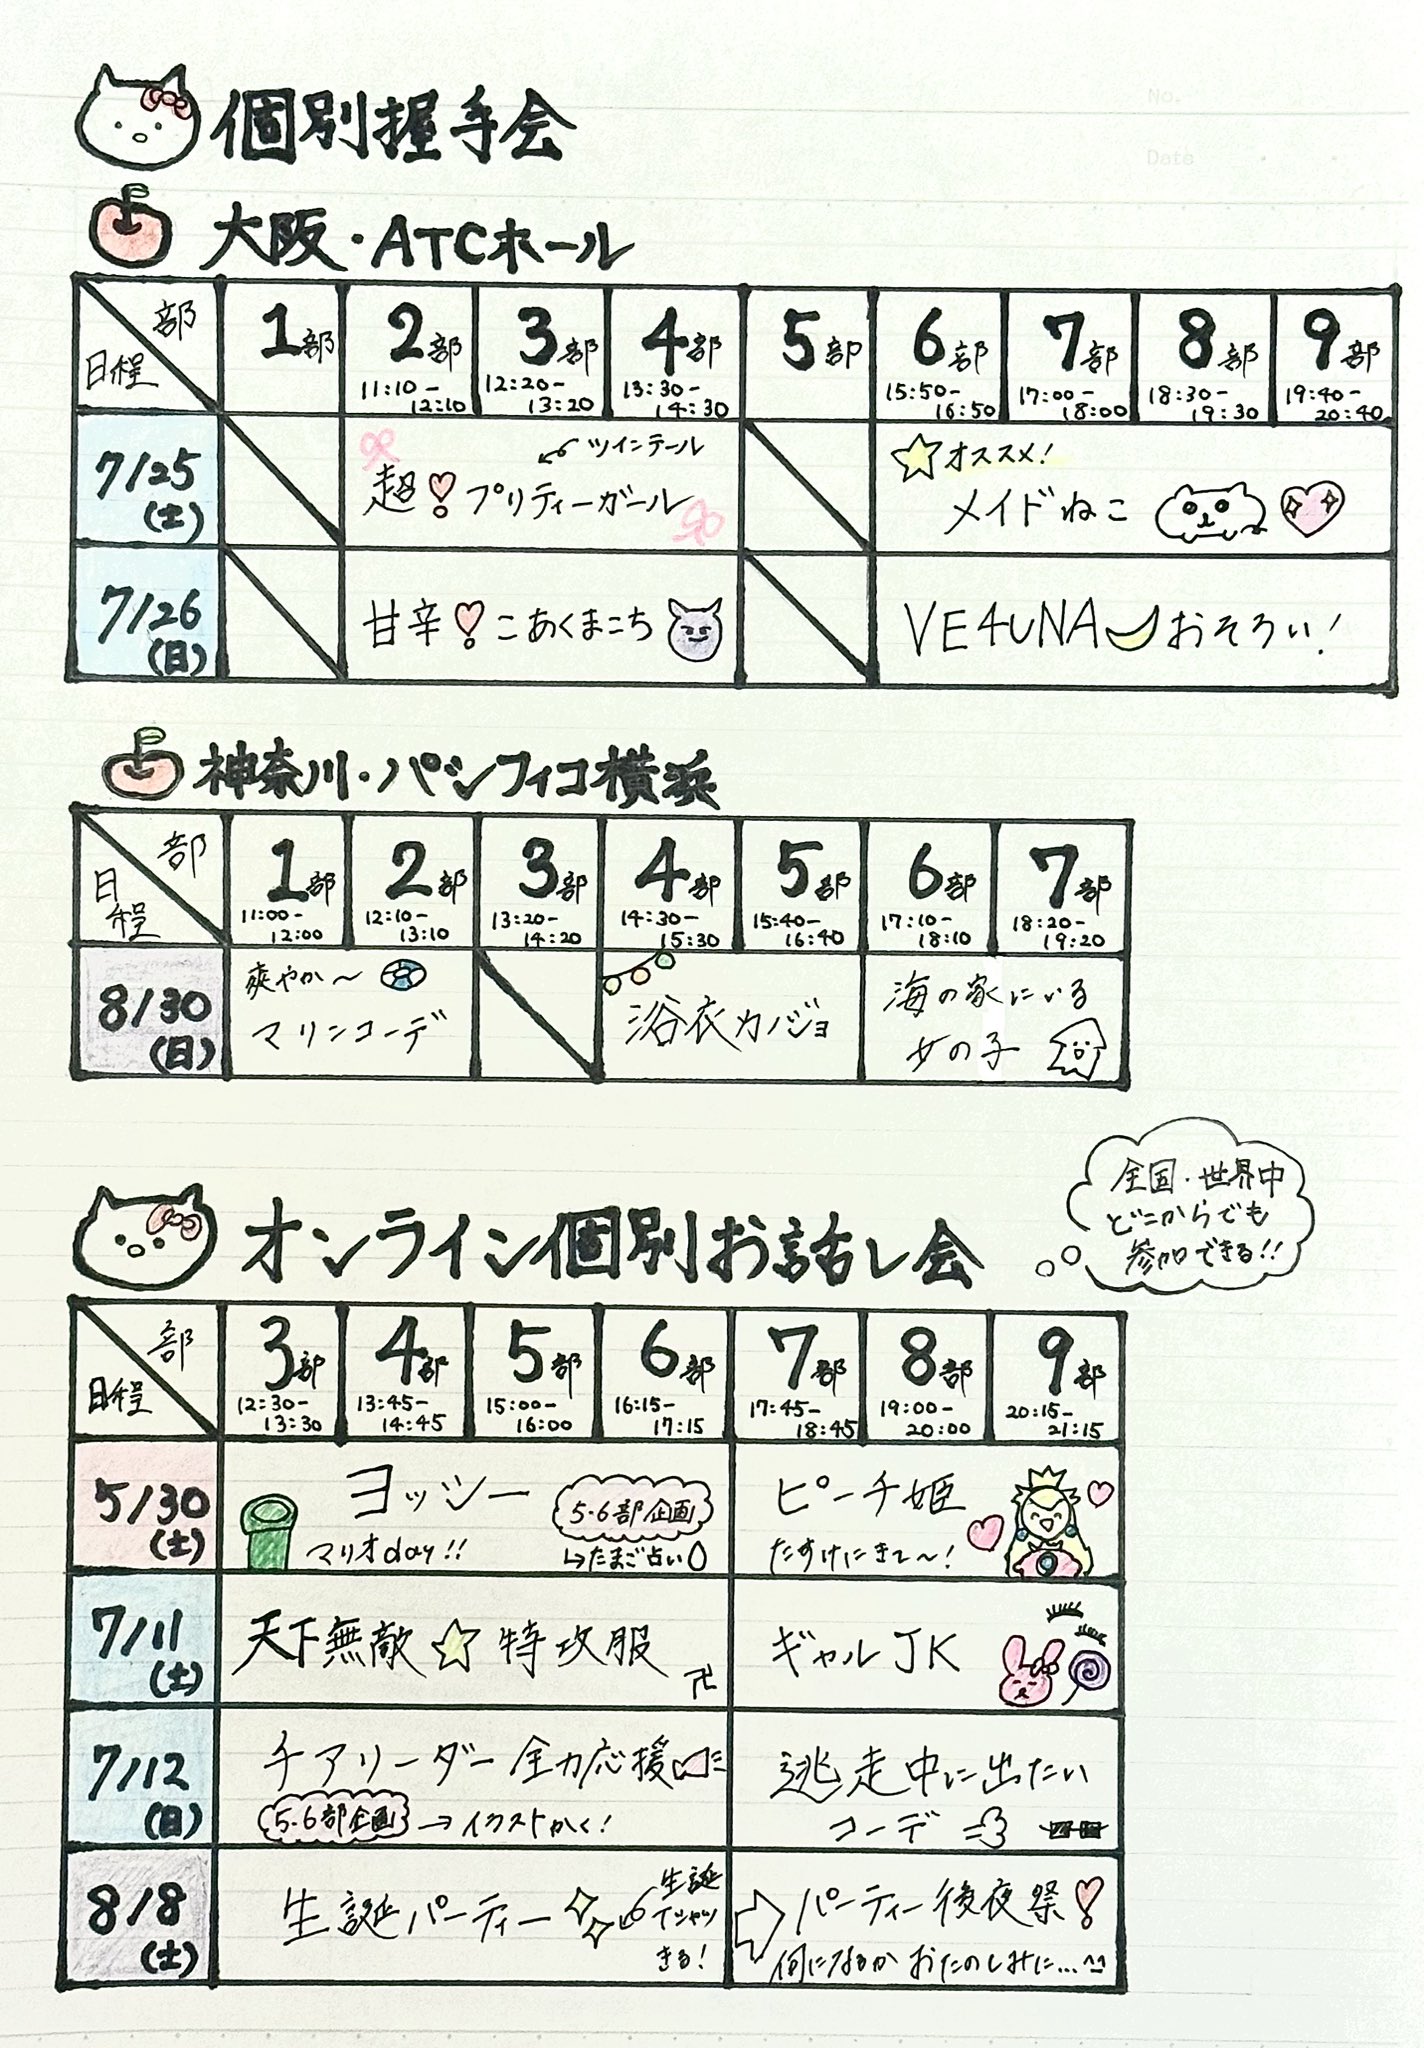 No.
Date
個別握手会
大阪・ATCホール
部
日程
1部
2部
11:10-
12:10
3部
12:20-
13:20
4部
13:30-
14:30
5部
6部
15:50-
16:50
7部
17:00-
18:00
8部
18:30-
19:30
9部
19:40-
20:40
7/25
(土)
ツインテール
超!プリティーガール
オススメ!
メイドねこ
7/26
(日)
甘辛!こあくまこち
VE4UNAおそろい!
神奈川・パシフィコ横浜
部
日程
1部
11:00-
12:00
2部
12:10-
13:10
3部
13:20-
14:20
4部
14:30-
15:30
5部
15:40-
16:40
6部
17:10-
18:10
7部
18:20-
19:20
8/30
(日)
爽やか〜
マリンコーデ
浴衣カノジョ
海の家にいる
女の子
オンライン個別お話し会
全国・世界中
どこからでも
参加できる!!
部
日程
3部
12:30-
13:30
4部
13:45-
14:45
5部
15:00-
16:00
6部
16:15-
17:15
7部
17:45-
18:45
8部
19:00-
20:00
9部
20:15-
21:15
5/30
(土)
ヨッシー
マリオday!!
5・6部企画
↳たまご占い
ピーチ姫
たすけにきて〜!
7/11
(土)
天下無敵☆特攻服
卍
ギャルJK
7/12
(日)
チアリーダー全力応援
5・6部企画→イラストかく!
逃走中に出たい
コーデ
8/8
(土)
生誕パーティー
生誕
Tシャツ
きる!
パーティー後夜祭!
何になるかおたのしみに...^^